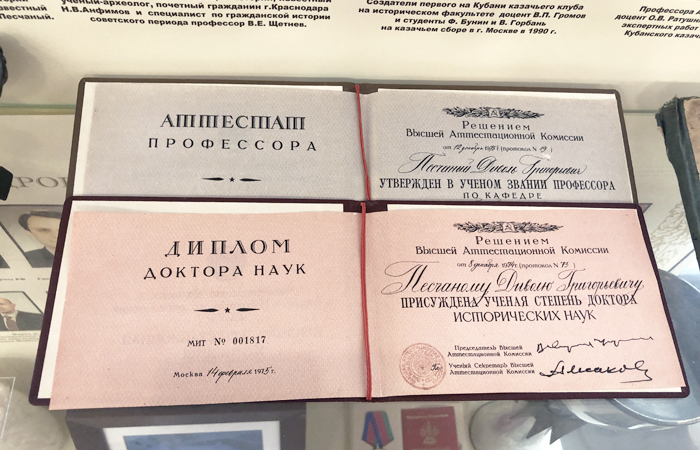 торий
звестный
Песчаный.
ученый-археолог, почетный гражданин г.Краснодара
Н.В.Анфимов и специалист по гражданской истории
советского периода профессор В.Е. Щетнев.
Создатели первого на Кубани казачьего клуба
на историческом факультете доцент В.П. Громов
и студенты Ф. Бунин и В. Горбань
на казачьем сборе в г. Москве в 1990 г.
Профессора
доцент О.В. Ратушн
экспертных работ
Кубанского казачье
АТТЕСТАТ
ПРОФЕССОРА
Решением
Высшей Аттестационной Комиссии
от 12 декабря 1975 г. (протокол №
Песчаный Дивель Григорьевич
УТВЕРЖДЕН В УЧЕНОМ ЗВАНИИ ПРОФЕССОРА
ПО КАФЕДРЕ
ДИПЛОМ
ДОКТОРА НАУК
МИТ № 001817
Москва 14 февраля 1975 г.
Решением
Высшей Аттестационной Комиссии
от декабря 1974 г. (протокол №
Песчаному Дивелю Григорьевичу
ПРИСУЖДЕНА УЧЕНАЯ СТЕПЕНЬ ДОКТОРА
ИСТОРИЧЕСКИХ НАУК
Председатель Высшей
Аттестационной Комиссии
Ученый Секретарь Высшей
Аттестационной Комиссии